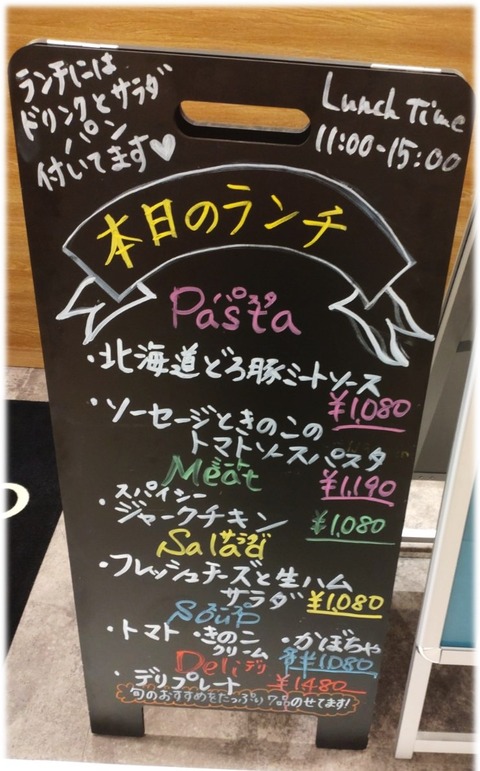 ランチには
ドリンクとサラダ
パン
付いてます♡
Lunch Time
11:00-15:00
本日のランチ
パスタ
Pasta
・北海道どろ豚ミートソース
¥1,080
・ソーセージときのこの
トマトソースパスタ
¥1,190
ミート
Meat
・スパイシー
ジャークチキン
¥1,080
サラダ
Salad
・フレッシュチーズと生ハム
サラダ ¥1,080
スープ
Soup
・トマト ・きのこ ・かぼちゃ
クリーム
各¥1,080
Deli デリ
・デリプレート ¥1,480
旬のおすすめをたっぷり7品のせてます!